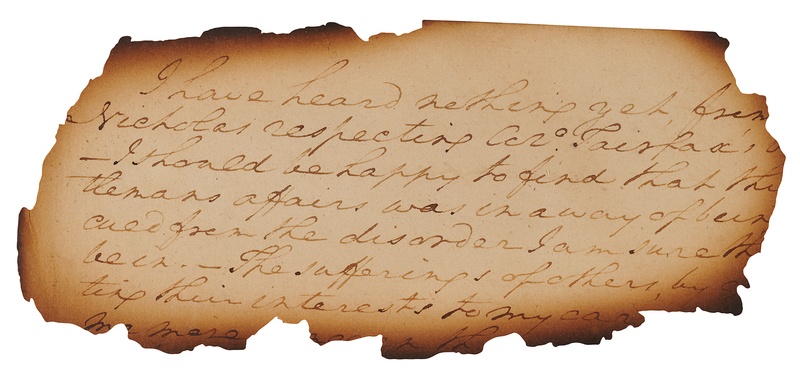 I have heard nothing yet, from
Nicholas respecting Geo. Fairfax's
– I should be happy to find that the
tlemans affairs was in a way of bein
cued from the disorder I am sure th
be in. – The sufferings of others, by
ting their interests to my ca
me more in th